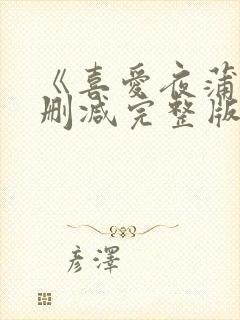 《喜爱夜蒲
删减完整版
彦澤